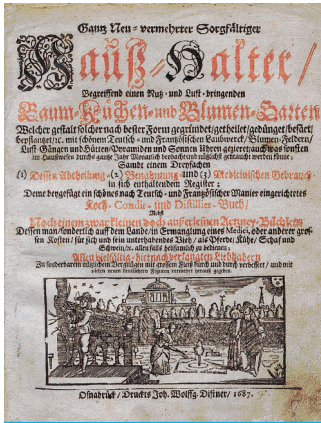 Gantz Neu-vermehrter Sorgfältiger
Hauß-Halter/
Begreiffend einen Nutz- und Lust-bringenden
Baum-Küchen- und Blumen-Garten
Welcher gestalt solcher nach bester Form gegründet/getheilet/gedünget/besäet/
bepflantzet/ꝛc. mit schönem Teusch- und Frantzösischen Laubwerck/Blumen-Feldern/
Lust-Gängen und Hütten-Verwahren/ Uhren gezieret/auch was sonsten
im Haußwesen durchs gantze Jahr Monatlich beobacht und nützlich gebraucht werden könne;
Sambt einem Dreyfachen
(1) Dessen Abtheilung-(2) Benahmung- und (3) Medicinischen Gebrauch
in sich enthaltendem Register;
Deme beygefügt ein schönes nach Teusch- und Frantzösischer Manier eingerichtetes
Koch- Condir- und Distillier-Buch/
Nebst
Noch einem zwar kleinen doch auserlesenen Artzney-Büchlein
Dessen man/sonderlich auff dem Lande/in Ermanglung eines Medici, oder anderer gros-
sen Kosten/für sich und sein unterhabendes Vieh/als Pferde/Kühe/Schaf und
Schwein/ꝛc. allenfalls heilsamlich zu bedienen;
Allen vielfältig-hiernach verlangten Liebhabern
Zu sonderbarem nützlichem Vergnügen mit grossem Fleiß durch und durch verbessert/und mit
vielen neuen benöthigten Figuren vermehret heraus gegeben.
Osnabrück/Druckts Joh. Wolffg. Distner/1687.